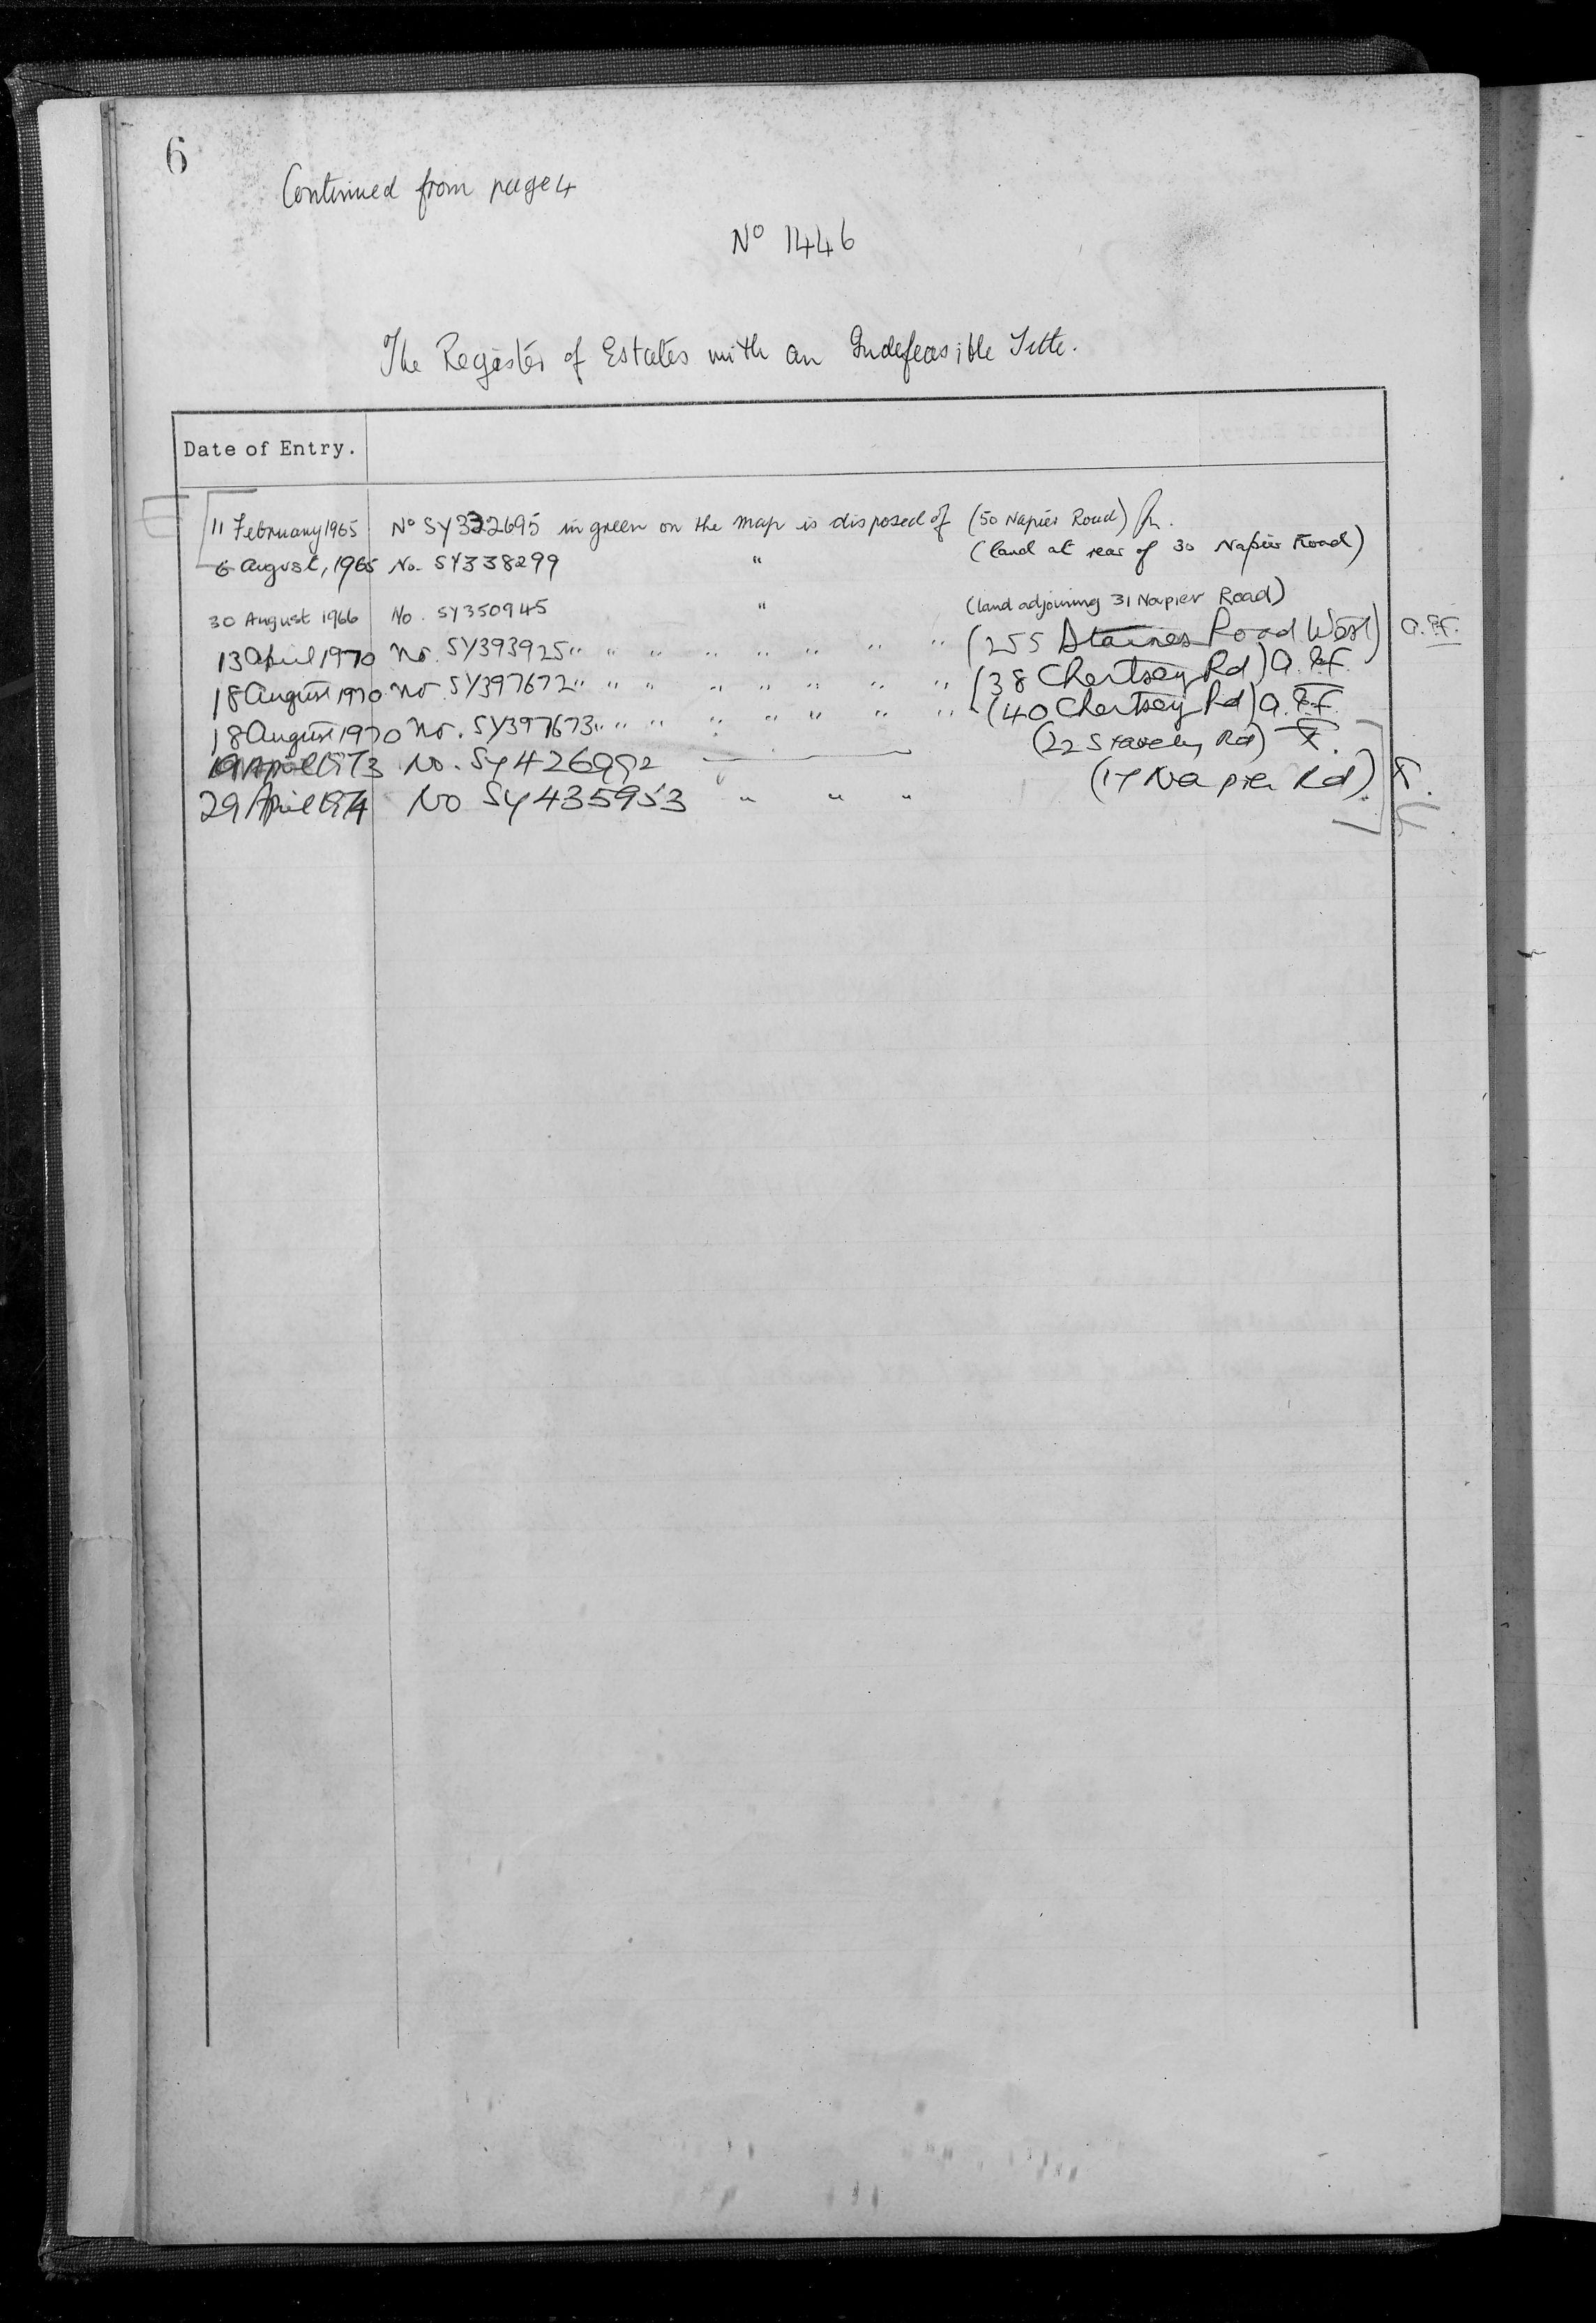 6
Continued from page 4
Nº 1446
The Register of Estates with an Indefeasible Title.
Date of Entry.
11 February 1965 Nº SY322695 in green on the map is disposed of (50 Napier Road)
6 August, 1965 No. SY338299 " (land at rear of 30 Napier Road)
30 August 1966 No. SY350945 " (land adjoining 31 Napier Road)
13 April 1970 No. SY393925 " " " " " " " " (255 Staines Road West) a.
18 August 1970 No. SY397672 " " " " " " " " (38 Chertsey Rd) a.
18 August 1970 No. SY397673 " " " " " " " " (40 Chertsey Rd) a.
19 April 1973 No. SY426992 (22 Staveley Rd)
29 April 1974 No SY435953 " " " (17 Napier Rd)